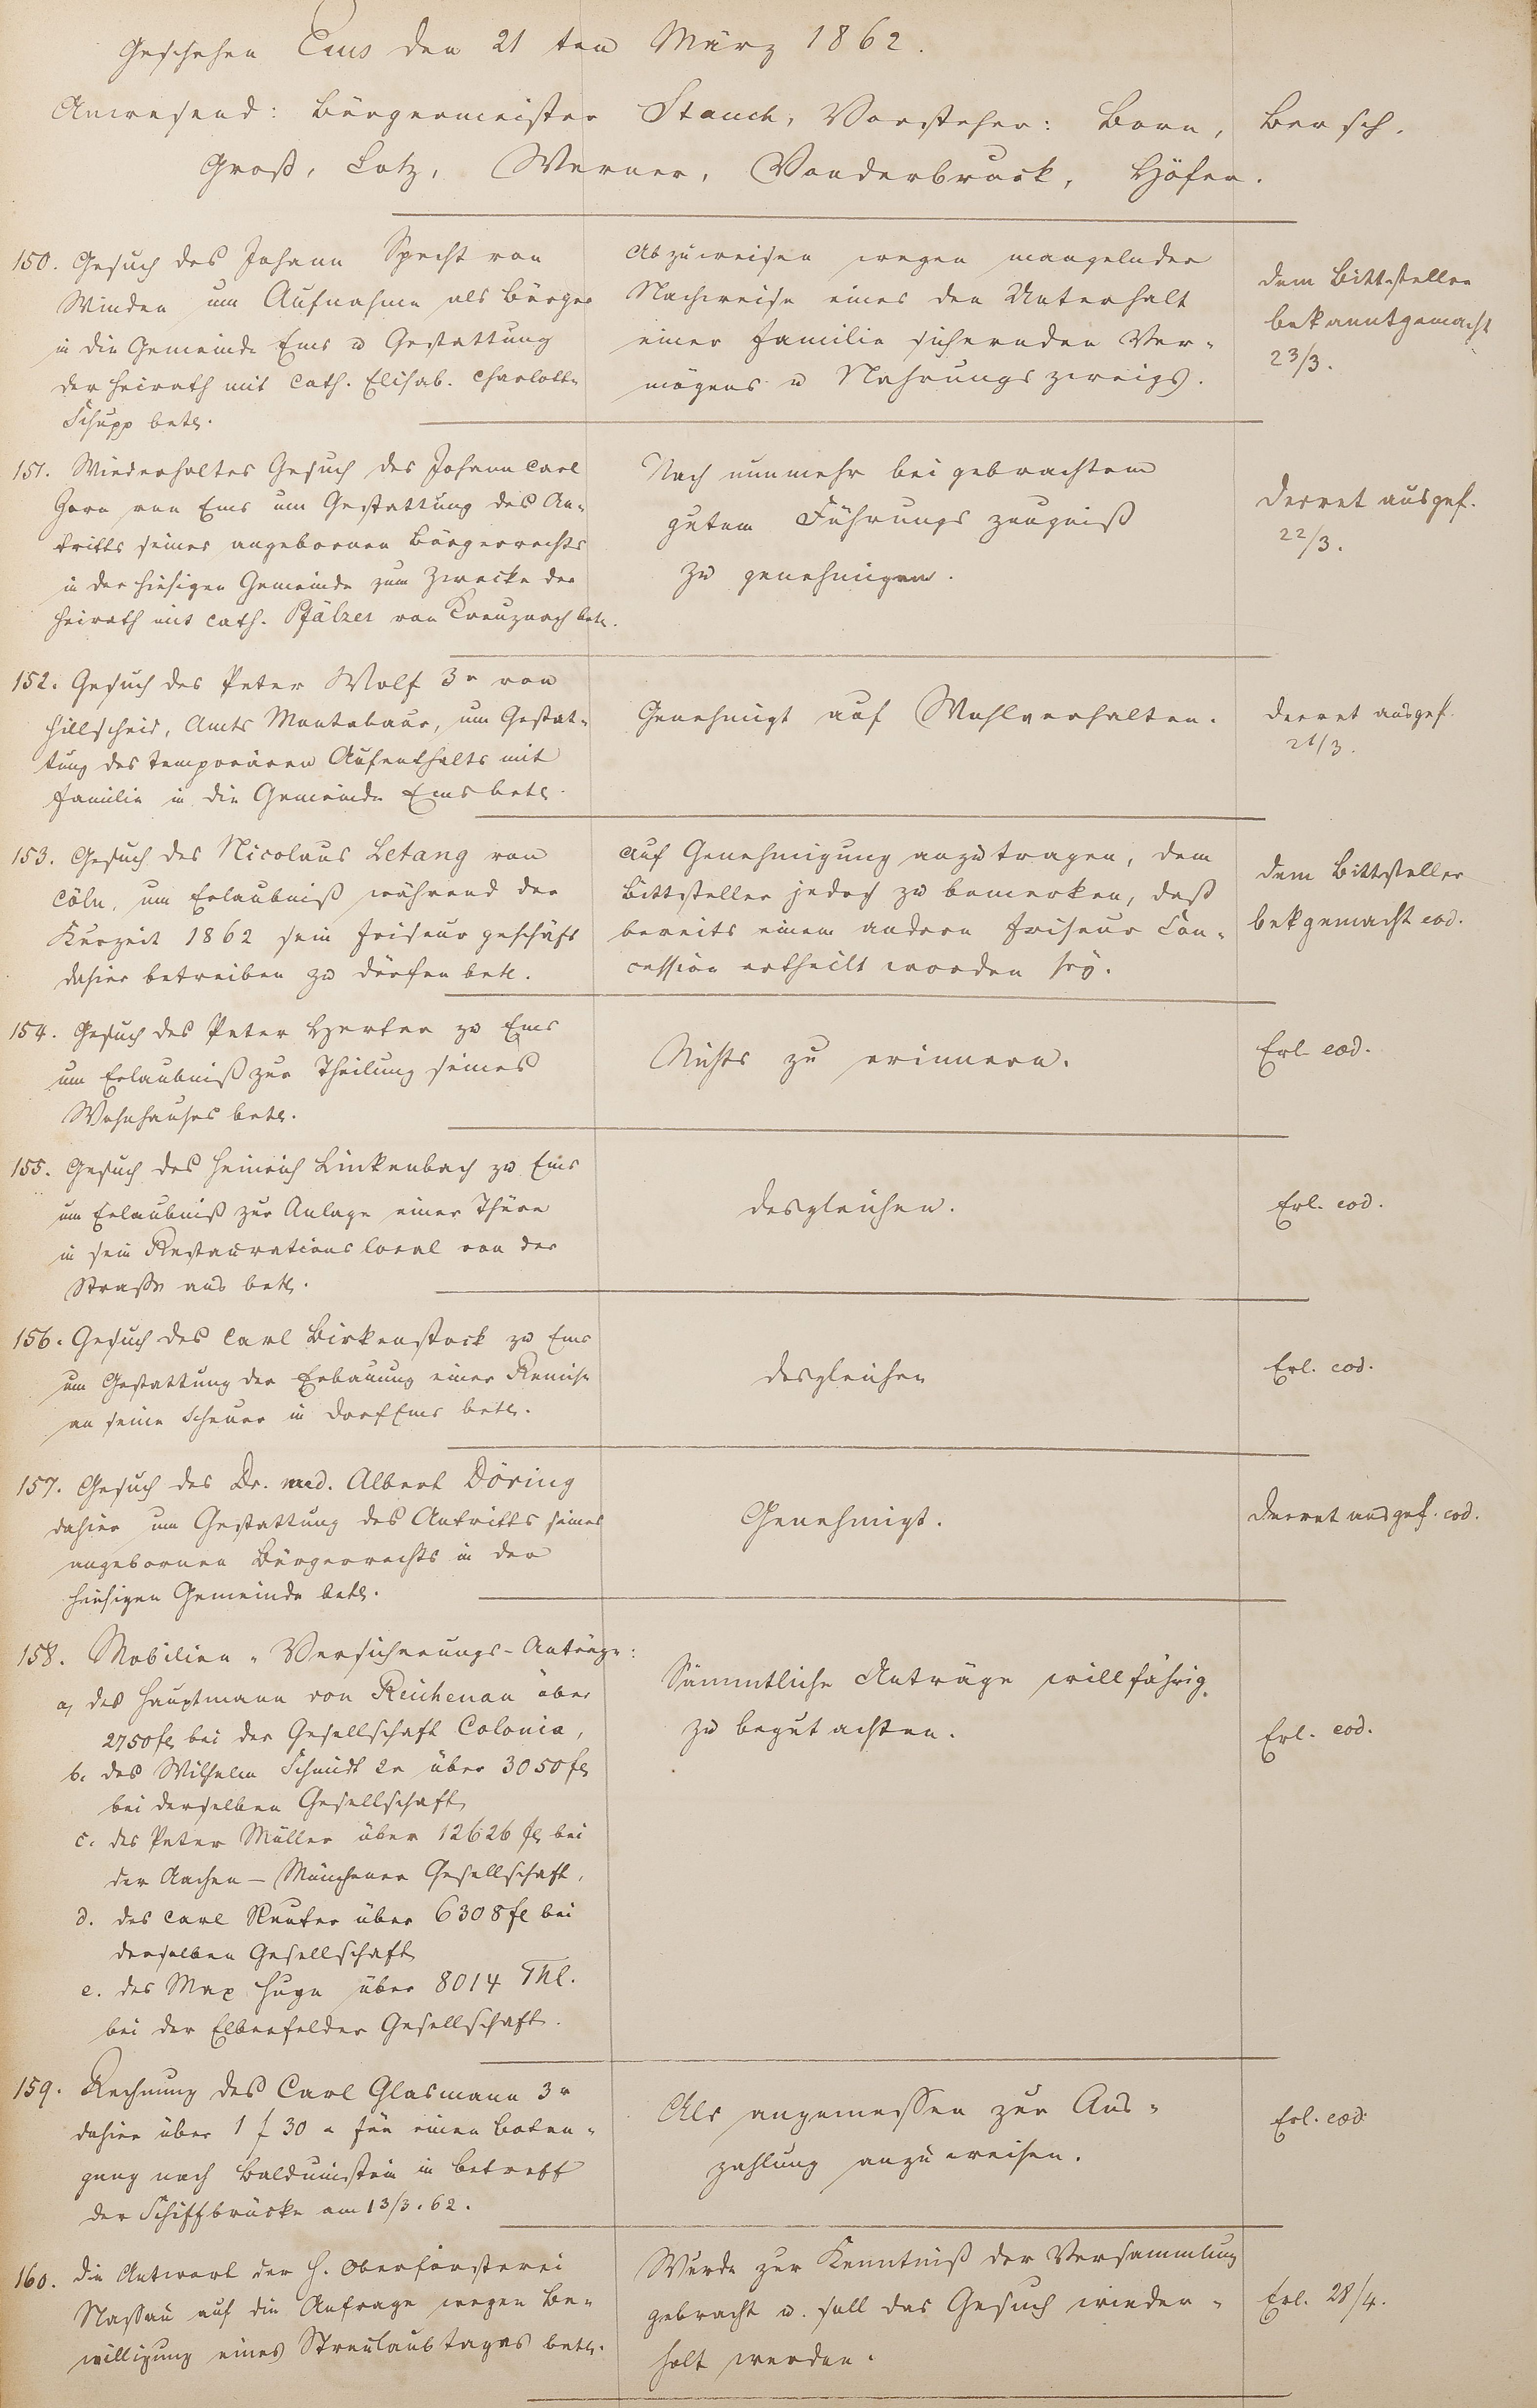 Geschehen Ems den 21 ten März 1862.
Anwesend: Bürgermeister Stauch, Vorsteher: Born, Bersch.
Groß, Lotz, Werner, Vonderbruck, Höfer.
150. Gesuch des Johann Specht von
Winden um Aufnahme als Bürger
in die Gemeinde Ems u Gestattung
der Heirath mit Cath. Elisab. Charlotte
Schupp betr.
Abzuweisen wegen mangelnder
Nachweise eines den Unterhalt
einer Familie sichernden Ver-
mögens u Nahrungszweigs.
dem Bittsteller
bekanntgemacht
23/3.
151. Wiederholtes Gesuch des Johann Carl
Horn von Ems um Gestattung des An-
tritts seines angebornen Bürgerrechts
in der hiesigen Gemeinde zum Zwecke der
Heirath mit Cath. Pfälzer von Kreuznach betr.
Nach nunmehr bei gebrachtem
gutem Führungs zeugniß
zu genehmigen.
Decret ausgef.
22/3.
152. Gesuch des Peter Wolf 3r von
Hillscheid, Amts Montabaur, um Gestat-
tung des temporären Aufenthalts mit
Familie in die Gemeinde Ems betr.
Genehmigt auf Wohlverhalten.
Decret ausgef.
21/3.
153. Gesuch des Nicolaus Letang von
Cöln, um Erlaubniß während der
Kurzeit 1862 sein Friseurgeschäft
dahier betreiben zu dürfen betr.
Auf Genehmigung anzutragen, dem
Bittsteller jedoch zu bemerken, daß
bereits einem andern Friseur Con-
cession ertheilt worden sey.
dem Bittsteller
bekgemacht eod.
154. Gesuch des Peter Herter zu Ems
um Erlaubniß zur Theilung seines
Wohnhauses betr.
Nichts zu erinnern.
Erl. eod.
155. Gesuch des Heinrich Linkenbach zu Ems
um Erlaubniß zur Anlage einer Thüre
in sein Restaurationslocal von der
Straße aus betr.
desgleichen.
Erl. eod.
156. Gesuch des Carl Birkenstock zu Ems
um Gestattung der Erbauung einer Remise
an seine Scheuer in Dorf Ems betr.
desgleichen
Erl. eod.
157. Gesuch des Dr. med. Albert Döring
dahier um Gestattung des Antritts seines
angebornen Bürgerrechts in der
hiesigen Gemeinde betr.
Genehmigt.
Decret ausgef. eod.
158. Mobilien-Versicherungs-Anträge:
a, des Hauptmann von Reichenau über
2750 fl bei der Gesellschaft Colonia,
b. des Wilhelm Schmidt 2r über 3050 fl
bei derselben Gesellschaft
c. des Peter Müller über 12626 fl bei
der Aachen-Münchener Gesellschaft,
d. des Carl Reuter über 6308 fl bei
derselben Gesellschaft
e. des Max Huyn über 8014 Thl.
bei der Elberfelder Gesellschaft.
Sämmtliche Anträge willfährig
zu begutachten.
Erl. eod.
159. Rechnung des Carl Glasmann 3r
dahier über 1 f 30 x für einen Boten-
gang nach Balduinstein in betreff
der Schiffbrücke am 13/3. 62.
Als angemessen zur Aus-
zahlung anzuweisen.
Erl. eod.
160. die Antwort der H. Oberförsterei
Nassau auf die Anfrage wegen Be-
willigung eines Streulaubtages betr.
Wurde zur Kenntniß der Versammlung
gebracht u. soll das Gesuch wieder-
holt werden.
Erl. 28/4.